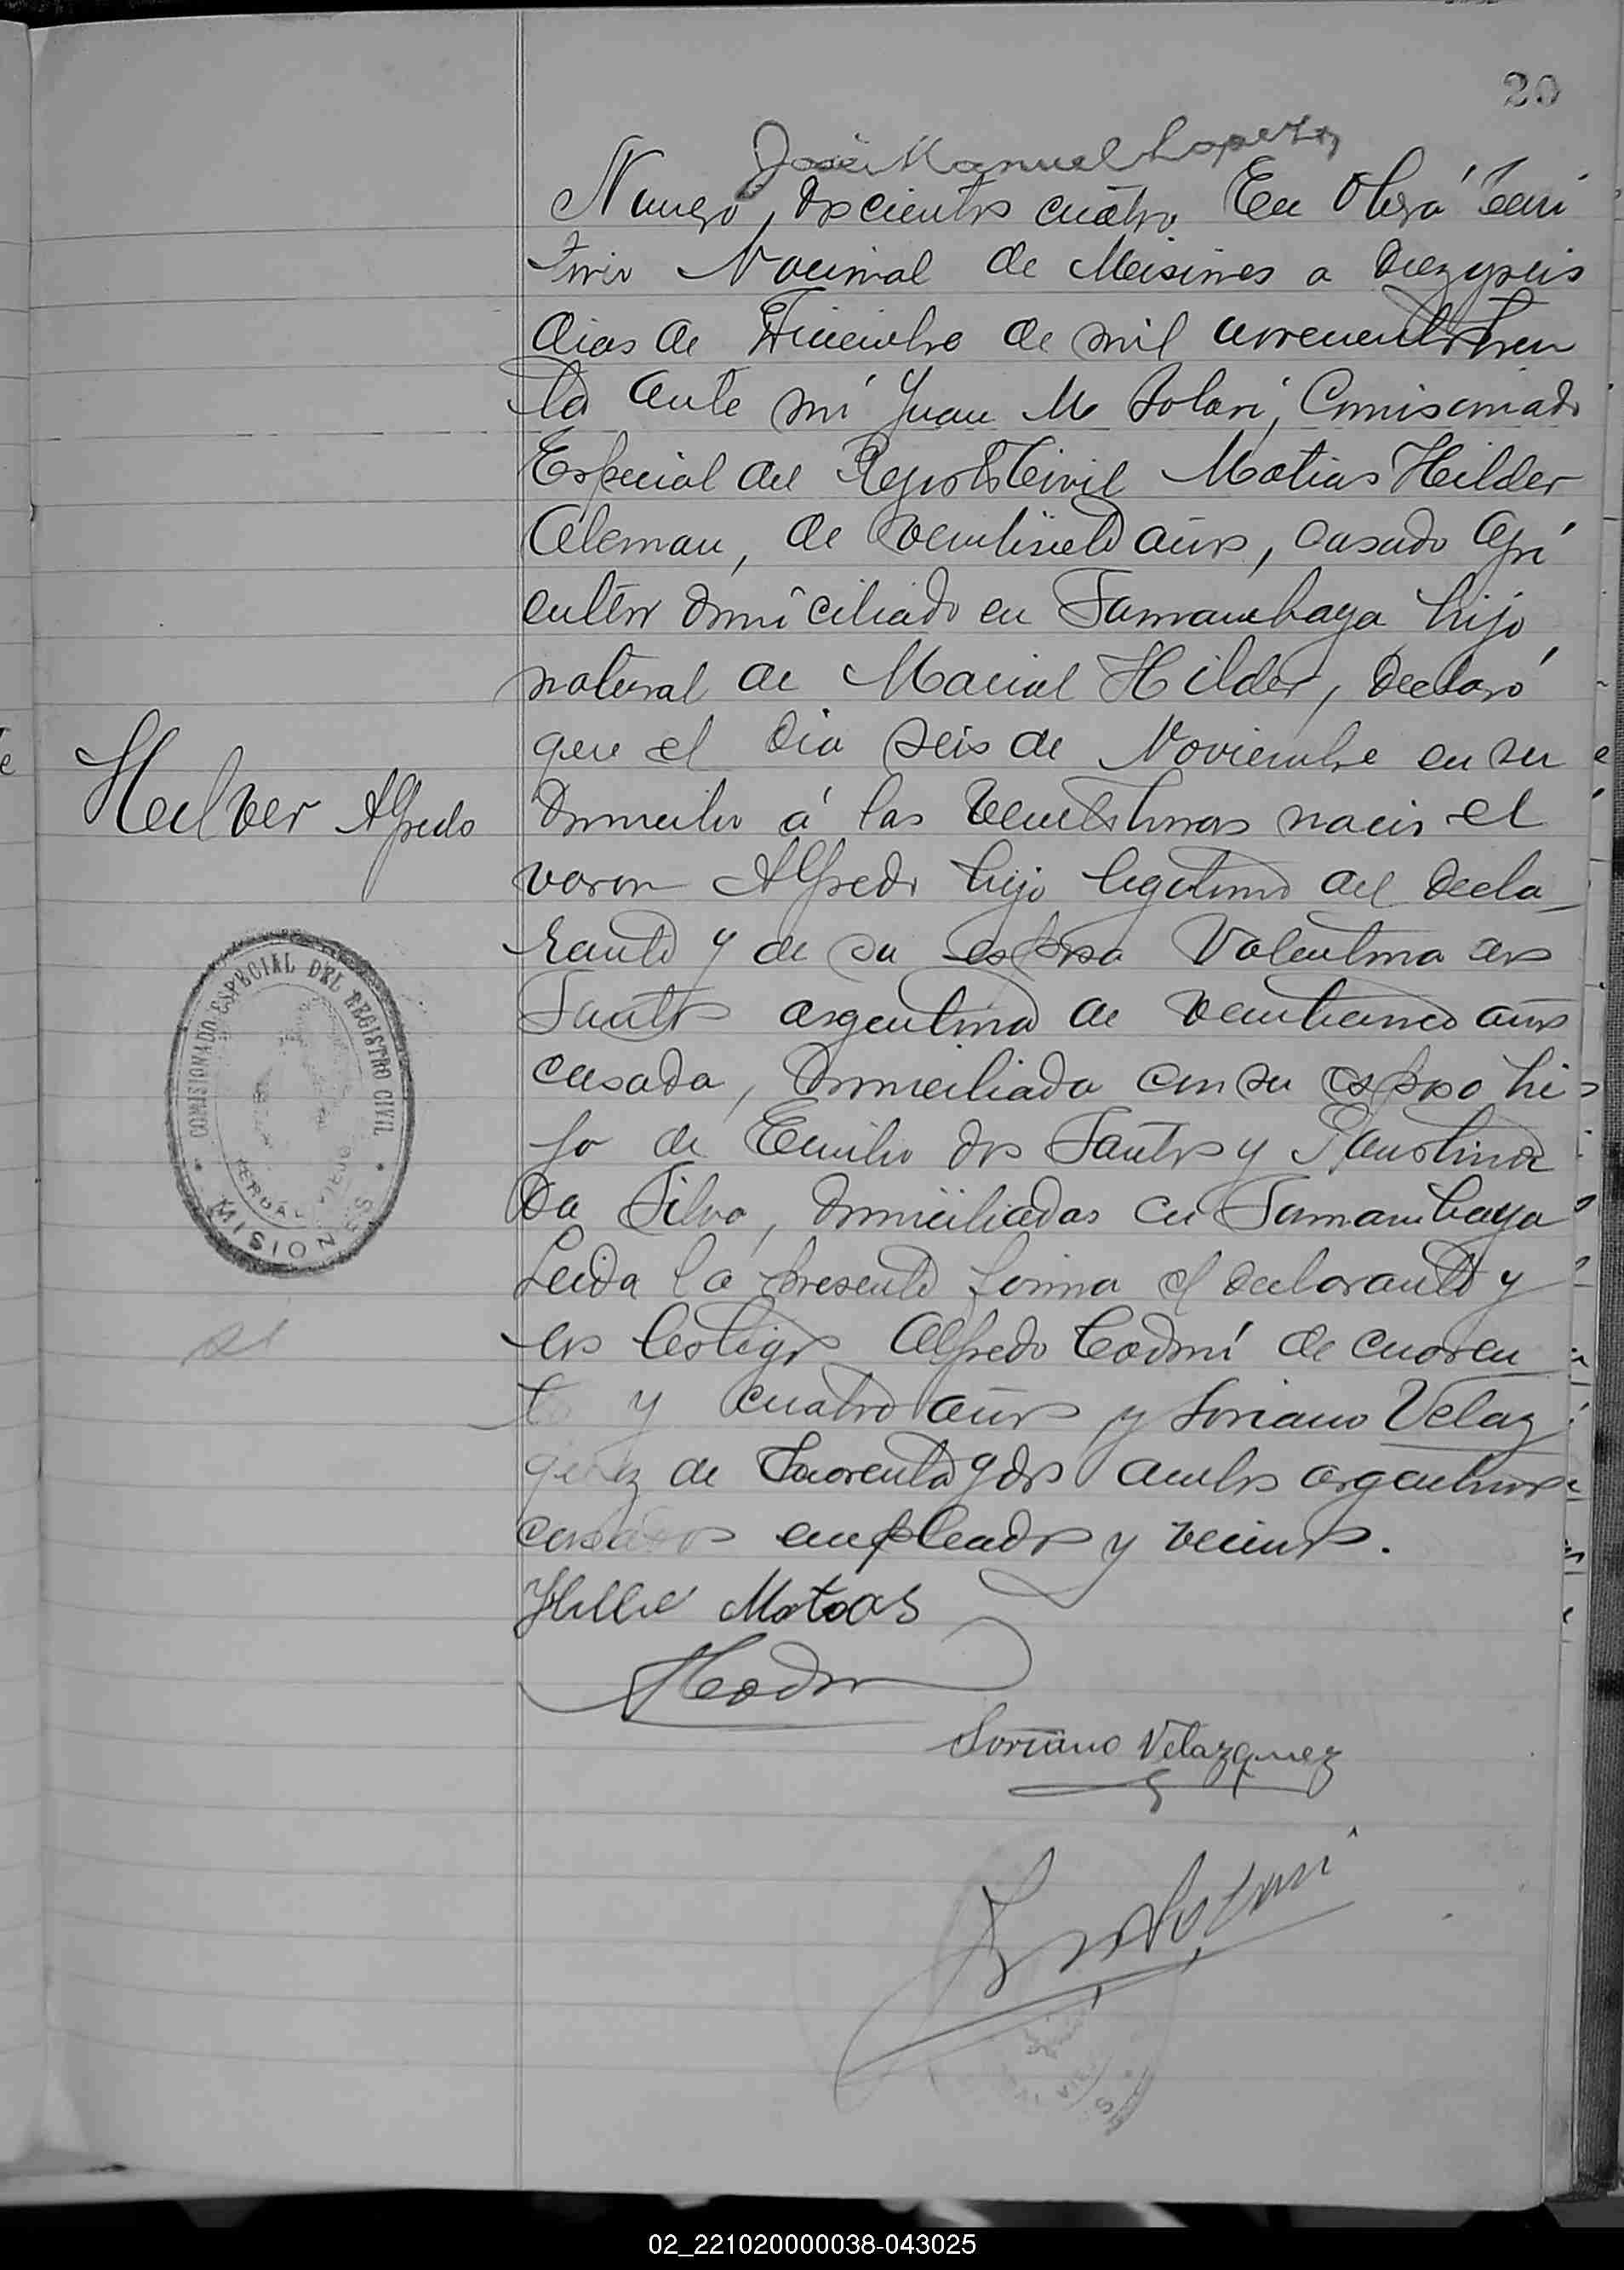 20
José Manuel Lopez
Numero, doscientos cuatro En Oberá Terri
torio Nacional de Misiones a diezyseis
dias de Diciembre de mil novecientos trein
ta ante mí Juan M Solari, Comisionado
Especial del Registro Civil Matias Hilder
Aleman, de veintisiete años, casado agri
cultor domiciliado en Tamambaya hijo
natural de Hilder, declaró
que el dia seis de Noviembre en su
domicilio á las veinte horas nacio el
varon Alfredo hijo legitimo del decla_
rante y de su esposa Valentina dos
Santos argentina de veinticinco años
casada, domiciliada con su esposo hi
ja de Emilio dos Santos y Faustina
Da Silva, domiciliadas en Tamambaya
Leida la presente firma el declarante y
los testigos Alfredo Codmí de cuaren
ta y cuatro años y Soriano Velaz
quez de cuarenta y dos ambos argentinos
casados empleados y vecinos.
Matias
Soriano Velazquez
Solari
Alfredo
COMISIONADO ESPECIAL DEL REGISTRO CIVIL
MISIONES
02_221020000038-043025